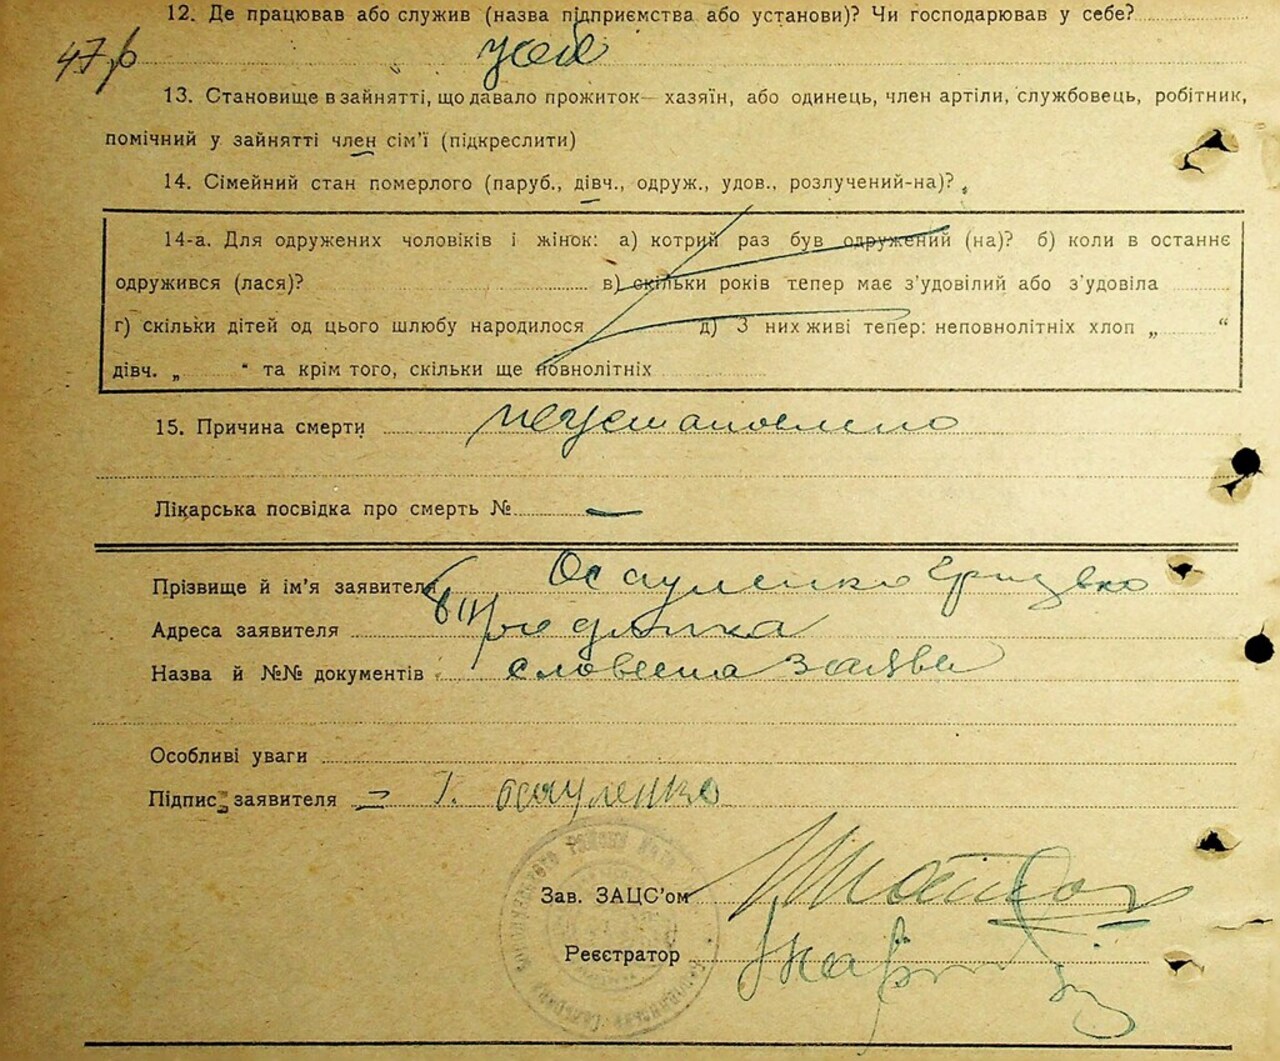 12. Де працював або служив (назва підприємства або установи)? Чи господарював у себе?
47
у себе
13. Становище в зайнятті, що давало прожиток— хазяїн, або одинець, член артіли, службовець, робітник,
помічний у зайнятті член сім'ї (підкреслити)
14. Сімейний стан померлого (паруб., дівч., одруж., удов., розлучений-на)?
14-а. Для одружених чоловіків і жінок: а) котрий раз був одружений (на)? б) коли в останнє
одружився (лася)? в) скільки років тепер має з'удовілий або з'удовіла
г) скільки дітей од цього шлюбу народилося д) З них живі тепер: неповнолітніх хлоп „ “
дівч. „ “ та крім того, скільки ще повнолітніх
15. Причина смерти неустановлено
Лікарська посвідка про смерть № —
Прізвище й ім'я заявителя Осауленко Грицько
Адреса заявителя
Назва й №№ документів словесна заява
Особливі уваги
Підпис заявителя = Г. Осауленко
Зав. ЗАЦС'ом
Реєстратор